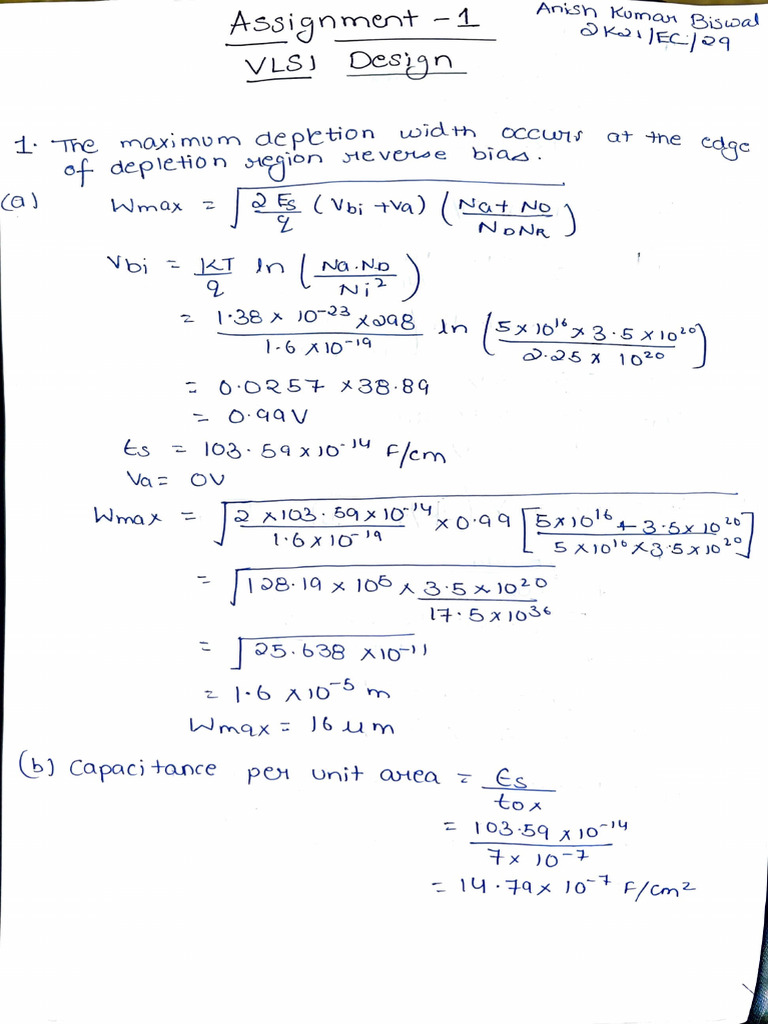 Assignment - 1
Anish Kumar Biswal
2K21/EC/29
VLSI Design
1. The maximum depletion width occurs at the edge
of depletion region reverse bias.
(a) Wmax = √(2 Es/q (Vbi + Va) (Na + ND / NDNR))
Vbi = KT/q ln (Na.ND / Ni²)
= 1.38 × 10⁻²³ × 298 / 1.6 × 10⁻¹⁹ ln (5 × 10¹⁶ × 3.5 × 10²⁰ / 2.25 × 10²⁰)
= 0.0257 × 38.89
= 0.99V
Es = 103.59 × 10⁻¹⁴ F/cm
Va = 0V
Wmax = √(2 × 103.59 × 10⁻¹⁴ / 1.6 × 10⁻¹⁹ × 0.99 [5 × 10¹⁶ + 3.5 × 10²⁰ / 5 × 10¹⁶ × 3.5 × 10²⁰])
= √(128.19 × 10⁵ × 3.5 × 10²⁰ / 17.5 × 10³⁶)
= √(25.638 × 10⁻¹¹)
= 1.6 × 10⁻⁵ m
Wmax = 16 um
(b) Capacitance per unit area = Es / tox
= 103.59 × 10⁻¹⁴ / 7 × 10⁻⁷
= 14.79 × 10⁻⁷ F/cm²